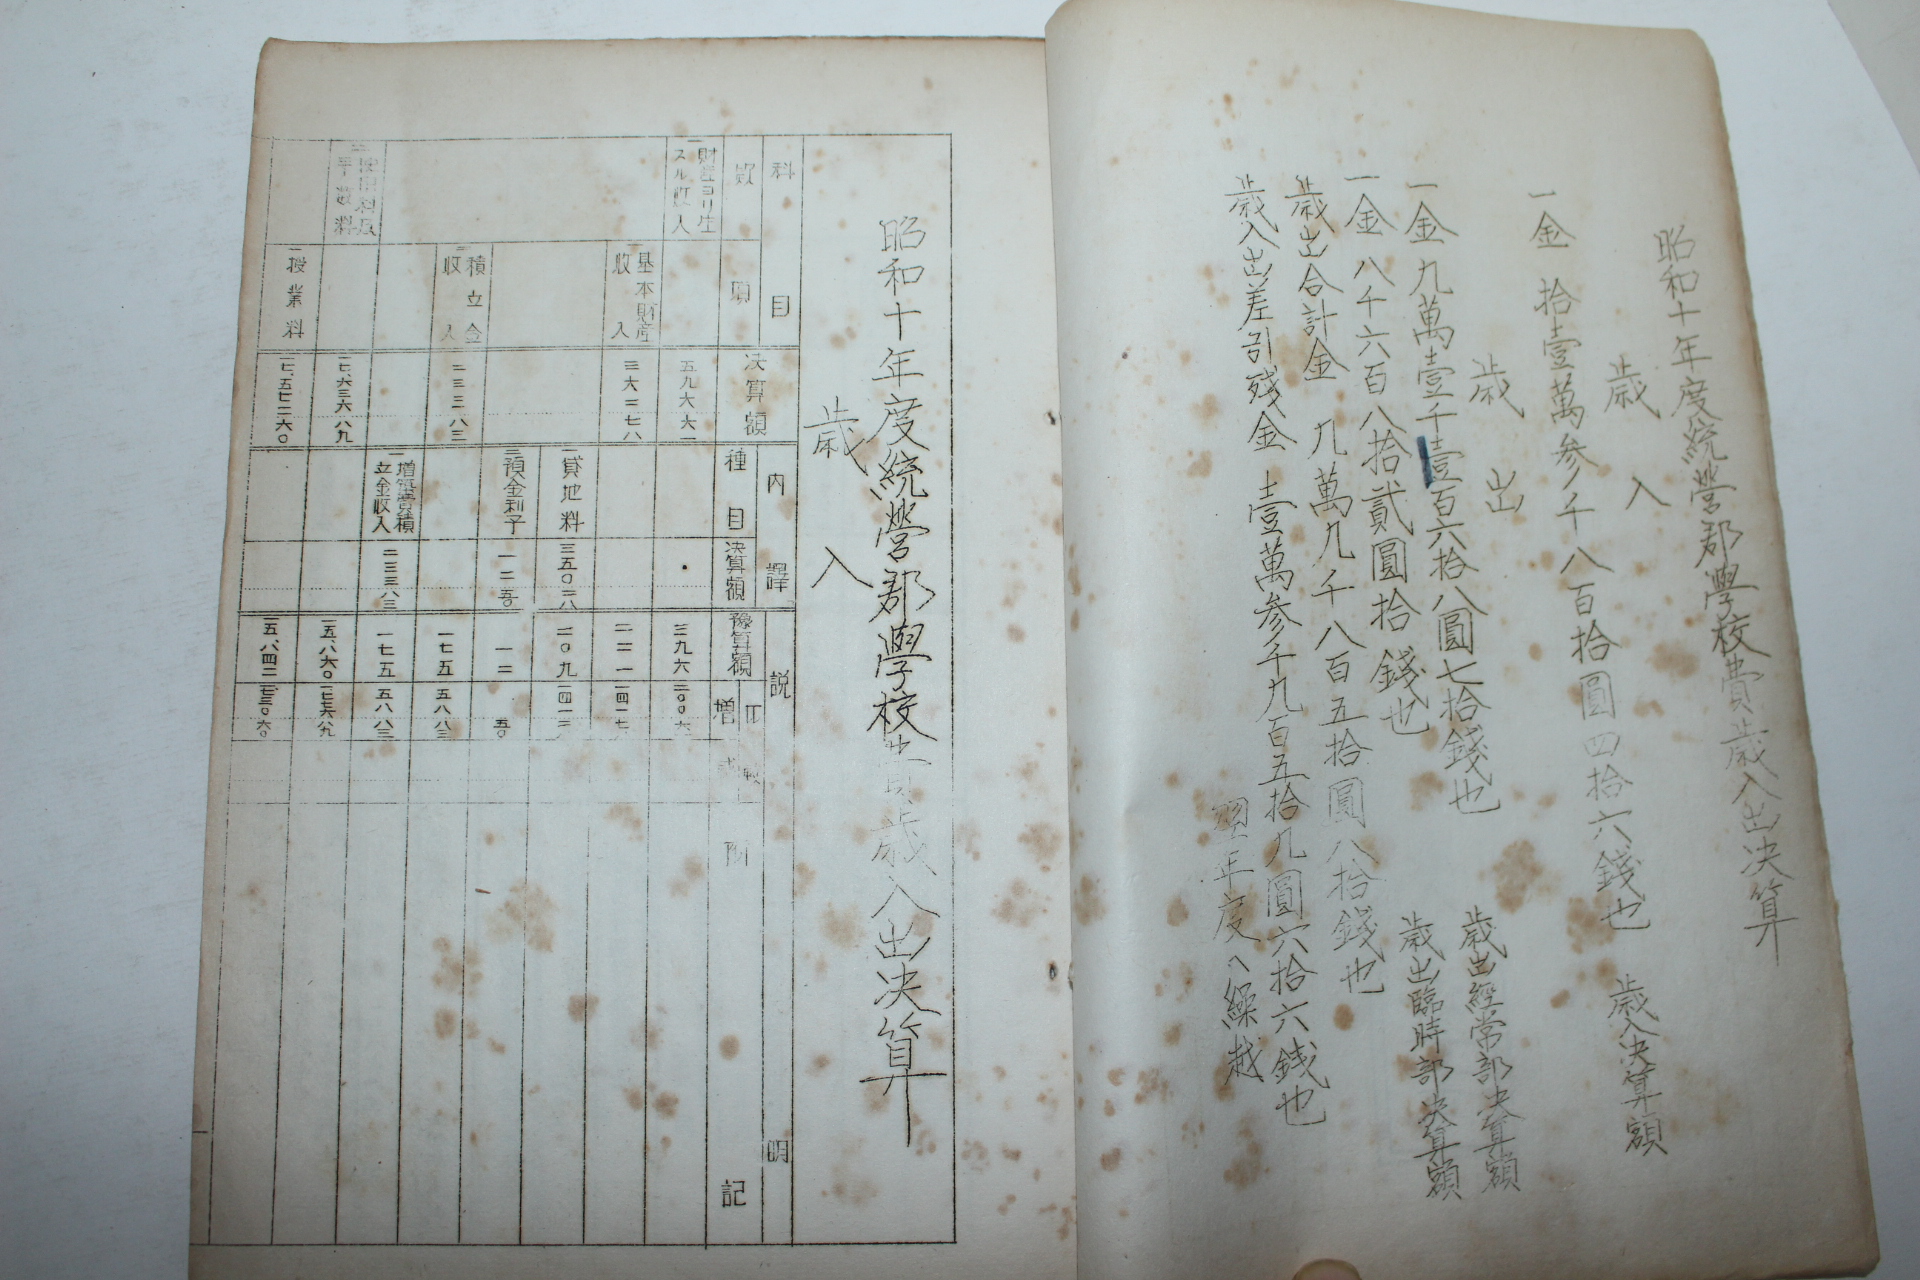 昭和十年度統營郡學校費歳入出決算
歳入
一金 拾壹萬參千八百拾圓四拾六錢也 歳入決算額
歳出
一金九萬壹千壹百六拾八圓七拾錢也 歳出經常部決算額
一金 八千六百八拾貳圓拾錢也 歳出臨時部決算額
歳出合計金 九萬九千八百五拾圓八拾錢也
歳入出差引殘金 壹萬參千九百五拾九圓六拾六錢也
翌年度ヘ繰越
昭和十年度統營郡學校費歳入出決算
歳入
科目
款
項
決算額
內譯
種目
決算額
豫算額
說明
增
附記
一財產ヨリ生スル收入
五九六六一
三九六
二〇〇六一
一基本財產收入
三六二七八
二二一
一四一七八
一貸地料
三五〇二八
二〇九
一四一二八
三預金利子
一二五〇
一二
五〇
二積立金收入
二三三八三
一七五
五八八三
一增築費積立金收入
二三三八三
一七五
五八八三
手數料
一七、六三六八九
一五、八六〇
一七七六八九
一授業料
一七、五七二六〇
一五、八四二
一七三〇六〇